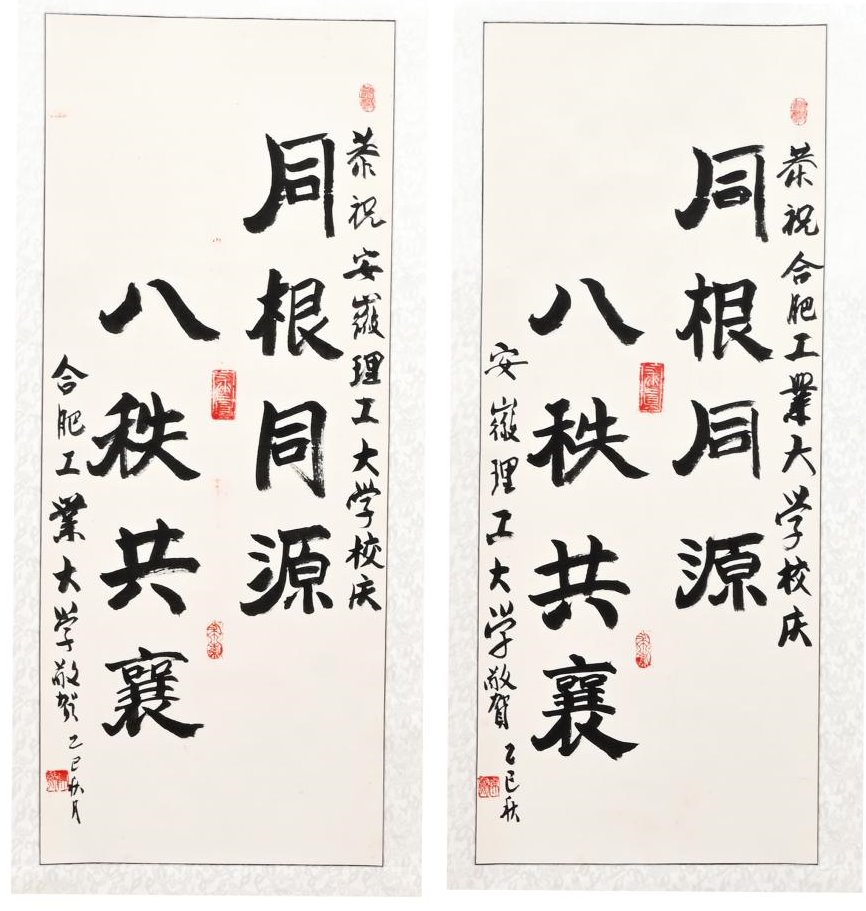 恭祝安徽理工大学校庆
同根同源
八秩共襄
合肥工業大学敬贺
乙巳秋月
恭祝合肥工業大学校庆
同根同源
八秩共襄
安徽理工大学敬賀
乙巳秋